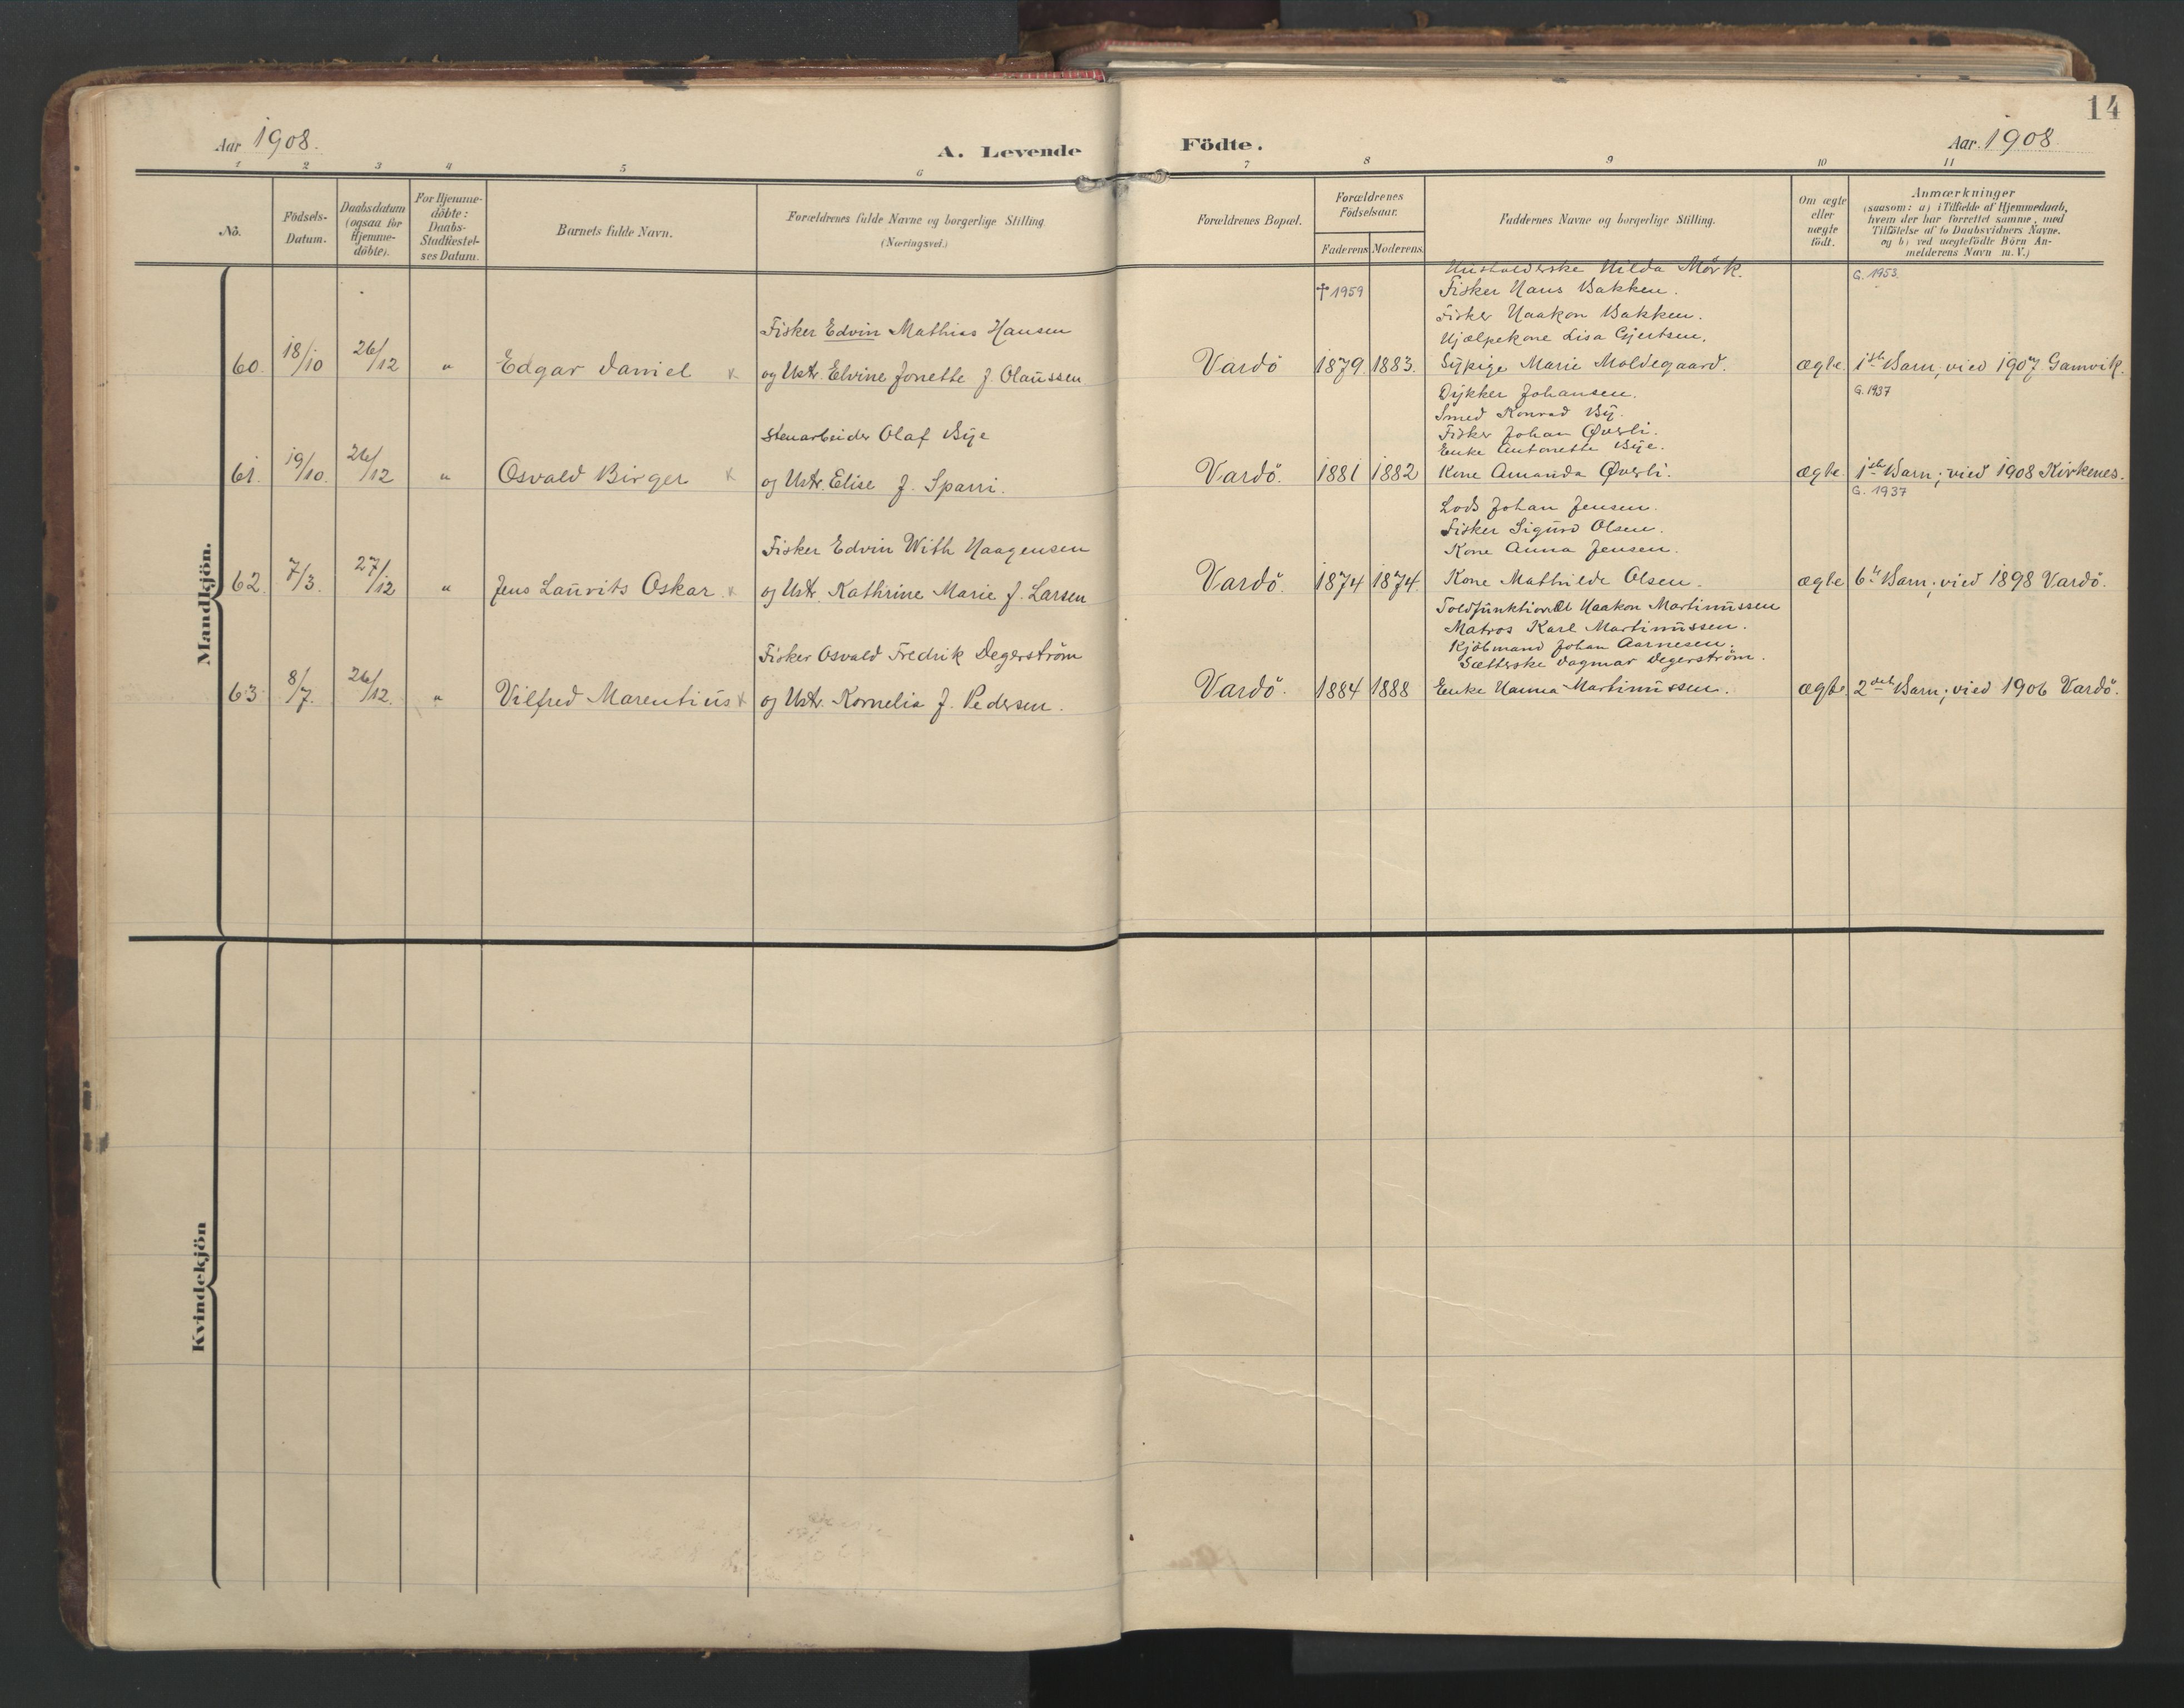 14
Aar 1908.
A. Levende
Födte.
Aar. 1908.
1 2 3 4 5 6 7 8 9 10 11
No.
Födsels-
Datum.
Daabsdatum
(ogsaa for
Hjemme-
döbte).
For Hjemme-
döbte:
Daabs-
Stadfæstel-
ses Datum.
Barnets fulde Navn.
Forældrenes fulde Navne og borgerlige Stilling
(Næringsvei.)
Forældrenes Bopæl.
Forældrenes
Födselsaar.
Faderens Moderens
Faddernes Navne og borgerlige Stilling.
Om ægte
eller
uægte
födt.
Anmærkninger
(saasom: a) i Tilfælde af Hjemmedaab,
hvem der har forrettet samme, med
Tilföielse af to Daabsvidners Navne.
og b) ved uægtefödte Börn An-
melderens Navn m.V.)
Mandkjön.
Husholderske Hilda Mörk.
† 1959
Fisker Hans Bakken.
G. 1953.
Fisker Haakon Bakken.
Fisker Edvin Mathias Hansen
Hjælpekone Lisa Gjertsen.
60. 18/10 26/12 " Edgar Daniel x og Ustr. Elvine Jonette f. Olaussen
Vardö 1879. 1883. Sypige Marie Moldegaard. ægte. 1ste Barn; vied 1907 Gamvik.
Dykker Johansen.
G. 1937
Smed Konrad By.
Stenarbeider Olaf Bye
Fisker Johan Øverli.
Enke Antonette Bye.
61. 19/10. 26/12 " Osvald Birger x og Ustr. Elise f. Sparri.
Vardö. 1881 1882 Kone Amanda Øverli. ægte. 1ste Barn; vied 1908 Kirkenes.
G. 1937
Lods Johan Jensen.
Fisker Sigurd Olsen.
Fisker Edvin With Haagensen
Kone Anna Jensen.
62. 7/3. 27/12 " Jens Lauvits Oskar x og Ustr. Kathrine Marie f. Larsen
Vardö. 1874 1874. Kone Mathilde Olsen. ægte 6te Barn; vied 1898 Vardö.
Haakon Martinussen
Matros Karl Martinussen.
Fisker Osvald Fredrik Degerström
Kjöbmand Johan Aarnesen.
Sætterske Dagmar Degerström.
63 8/7. 26/12. " Vilfred Marentius x og Ustr. Kornelia f. Pedersen.
Vardö. 1884 1888 Enke Hanna Martinussen. ægte. 2det Barn; vied 1906 Vardö.
Kvindekjön